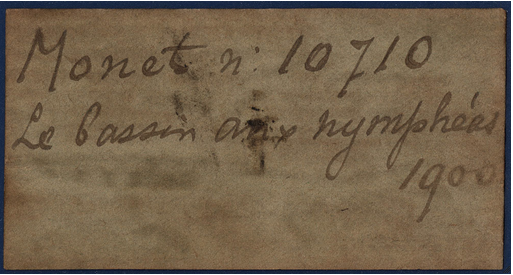 Monet n: 10710
Le bassin aux nymphéas
1900